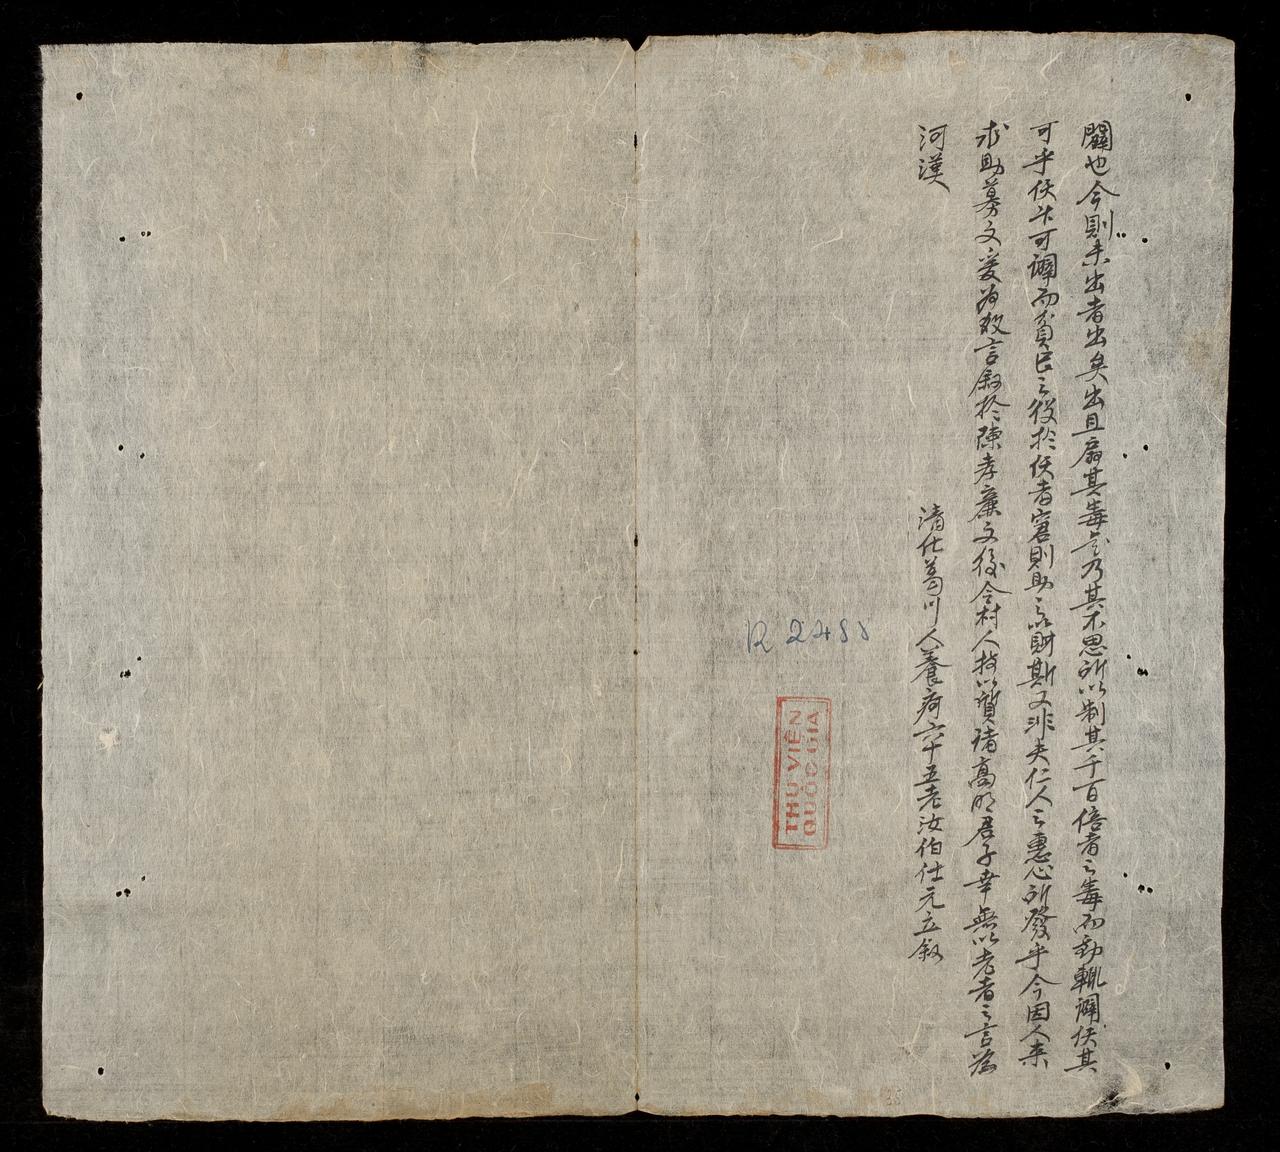 闢也今則未出者出矣出且扇其毒乃其不思所以制其千百倍者之毒而動輒謂佚其
可乎佚果可謂而貧民之役於佚者窘則助之以財斯又非夫仁人之惠心所發乎今因人來
求助募文爰為数言叙於陳孝廉文後令村人持以質諸高明君子幸無以老者之言為
河漢
清仕葛川人養疴六十五老汝伯仕元立叙
R 2488
THƯ VIỆN
QUỐC GIA